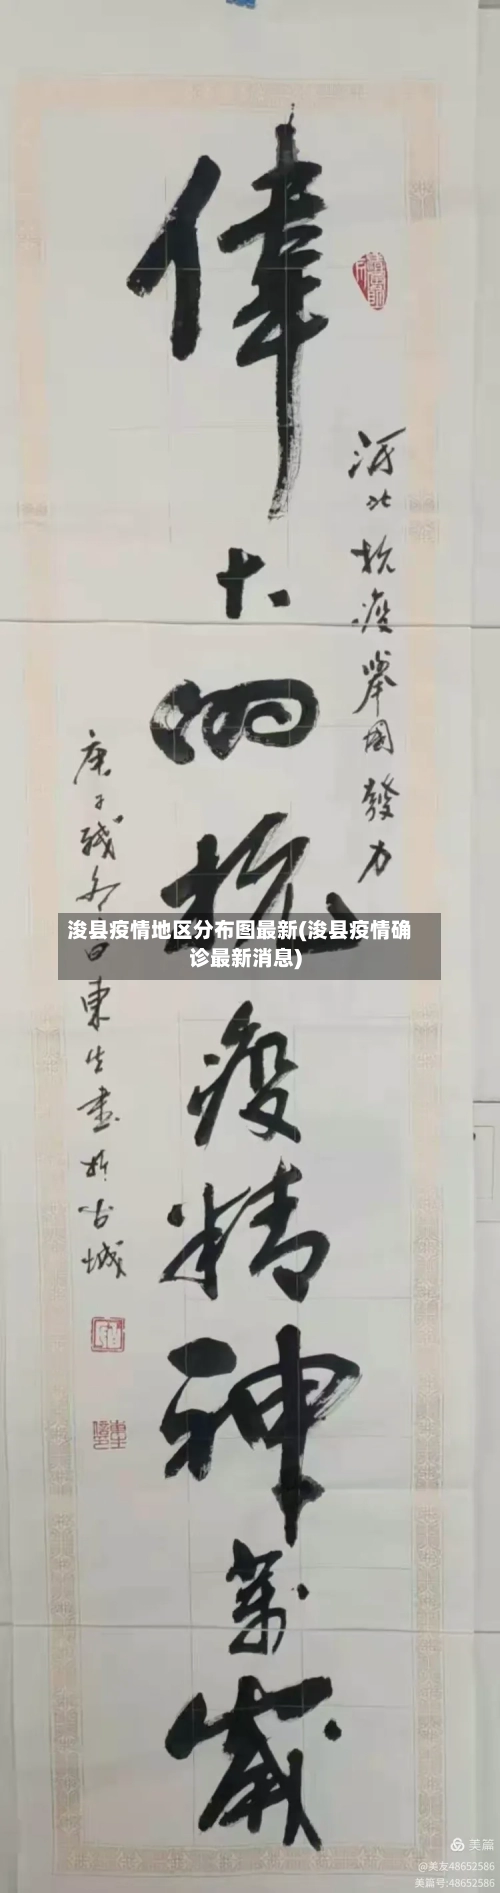 偉大的抗疫精神萬歲
河北抗疫舉國發力
庚子残冬 日東生書於古城
浚县疫情地区分布图最新(浚县疫情确
诊最新消息)
美篇
@美友48652586
美篇号:48652586